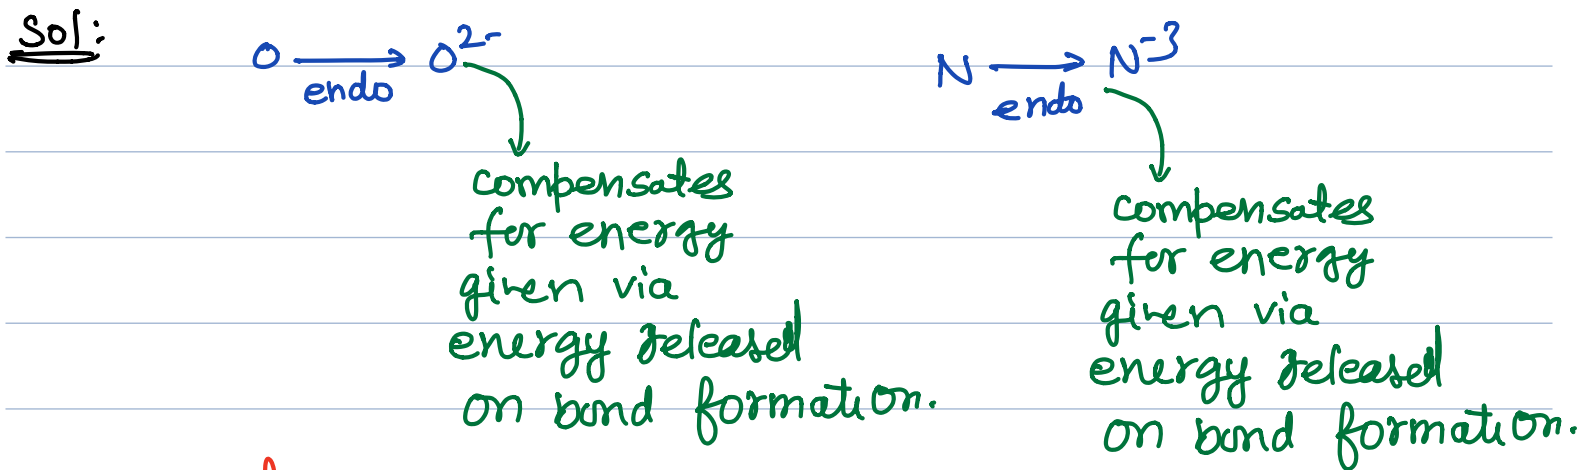 Sol:
O ⟶ O²⁻
endo
compensates
for energy
given via
energy released
on bond formation.
N ⟶ N⁻³
endo
compensates
for energy
given via
energy released
on bond formation.